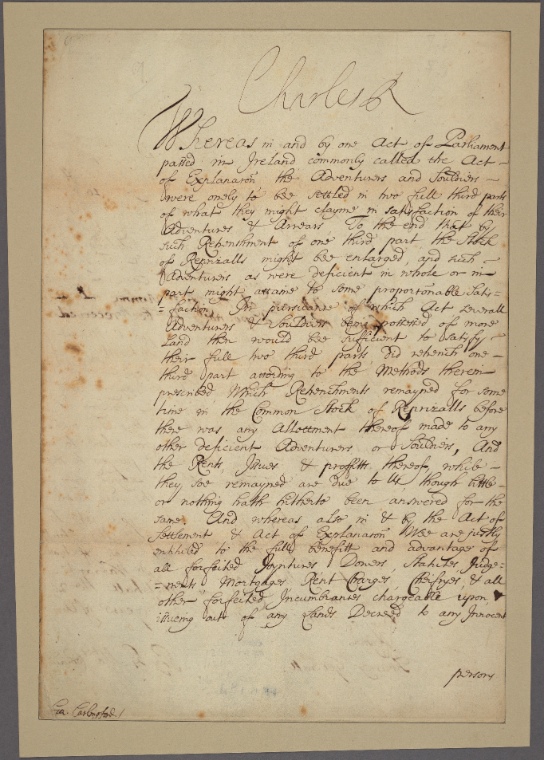 Charles R
Whereas in and by one Act of Parliament
passed in Ireland commonly called the Act
of Explanaron the Adventurers and Souldiers
were onely to bee settled in two full third parts
of what they might clayme in satisfaction of their
Adventures & Arrears To the end that by
such Retrenchment of one third part the Stock
of Reprizalls might bee enlarged, and such
Adventurers as were deficient in whole or in
part might attaine to some proportionable Satis=
=faction In pursuance of which Act severall
Adventurers & Souldiers being possessed of more
Land then would bee sufficient to satisfy
their full two third parts did retrench one
third part according to the Methods therein
prescribed Which Retrenchments remayned for some
time in the Common Stock of Reprizalls before
there was any Allottment thereof made to any
other deficient Adventurers or Souldiers, And
the Rents Issues & proffitts thereof, while
they soe remayned are due to Us though little
or nothing hath hitherto been answered for the
same And whereas also in & by the Act of
Settlement & Act of Explanaron Wee are justly
entituled to the full benefitt and advantage of
all forfeited Joyntures Dowers, Statutes Judge=
=ments Mortgages Rent Charges & all
other forfeited Incumbrances chargeable upon &
issueing out of any Lands Decreed to any Innocent
persons